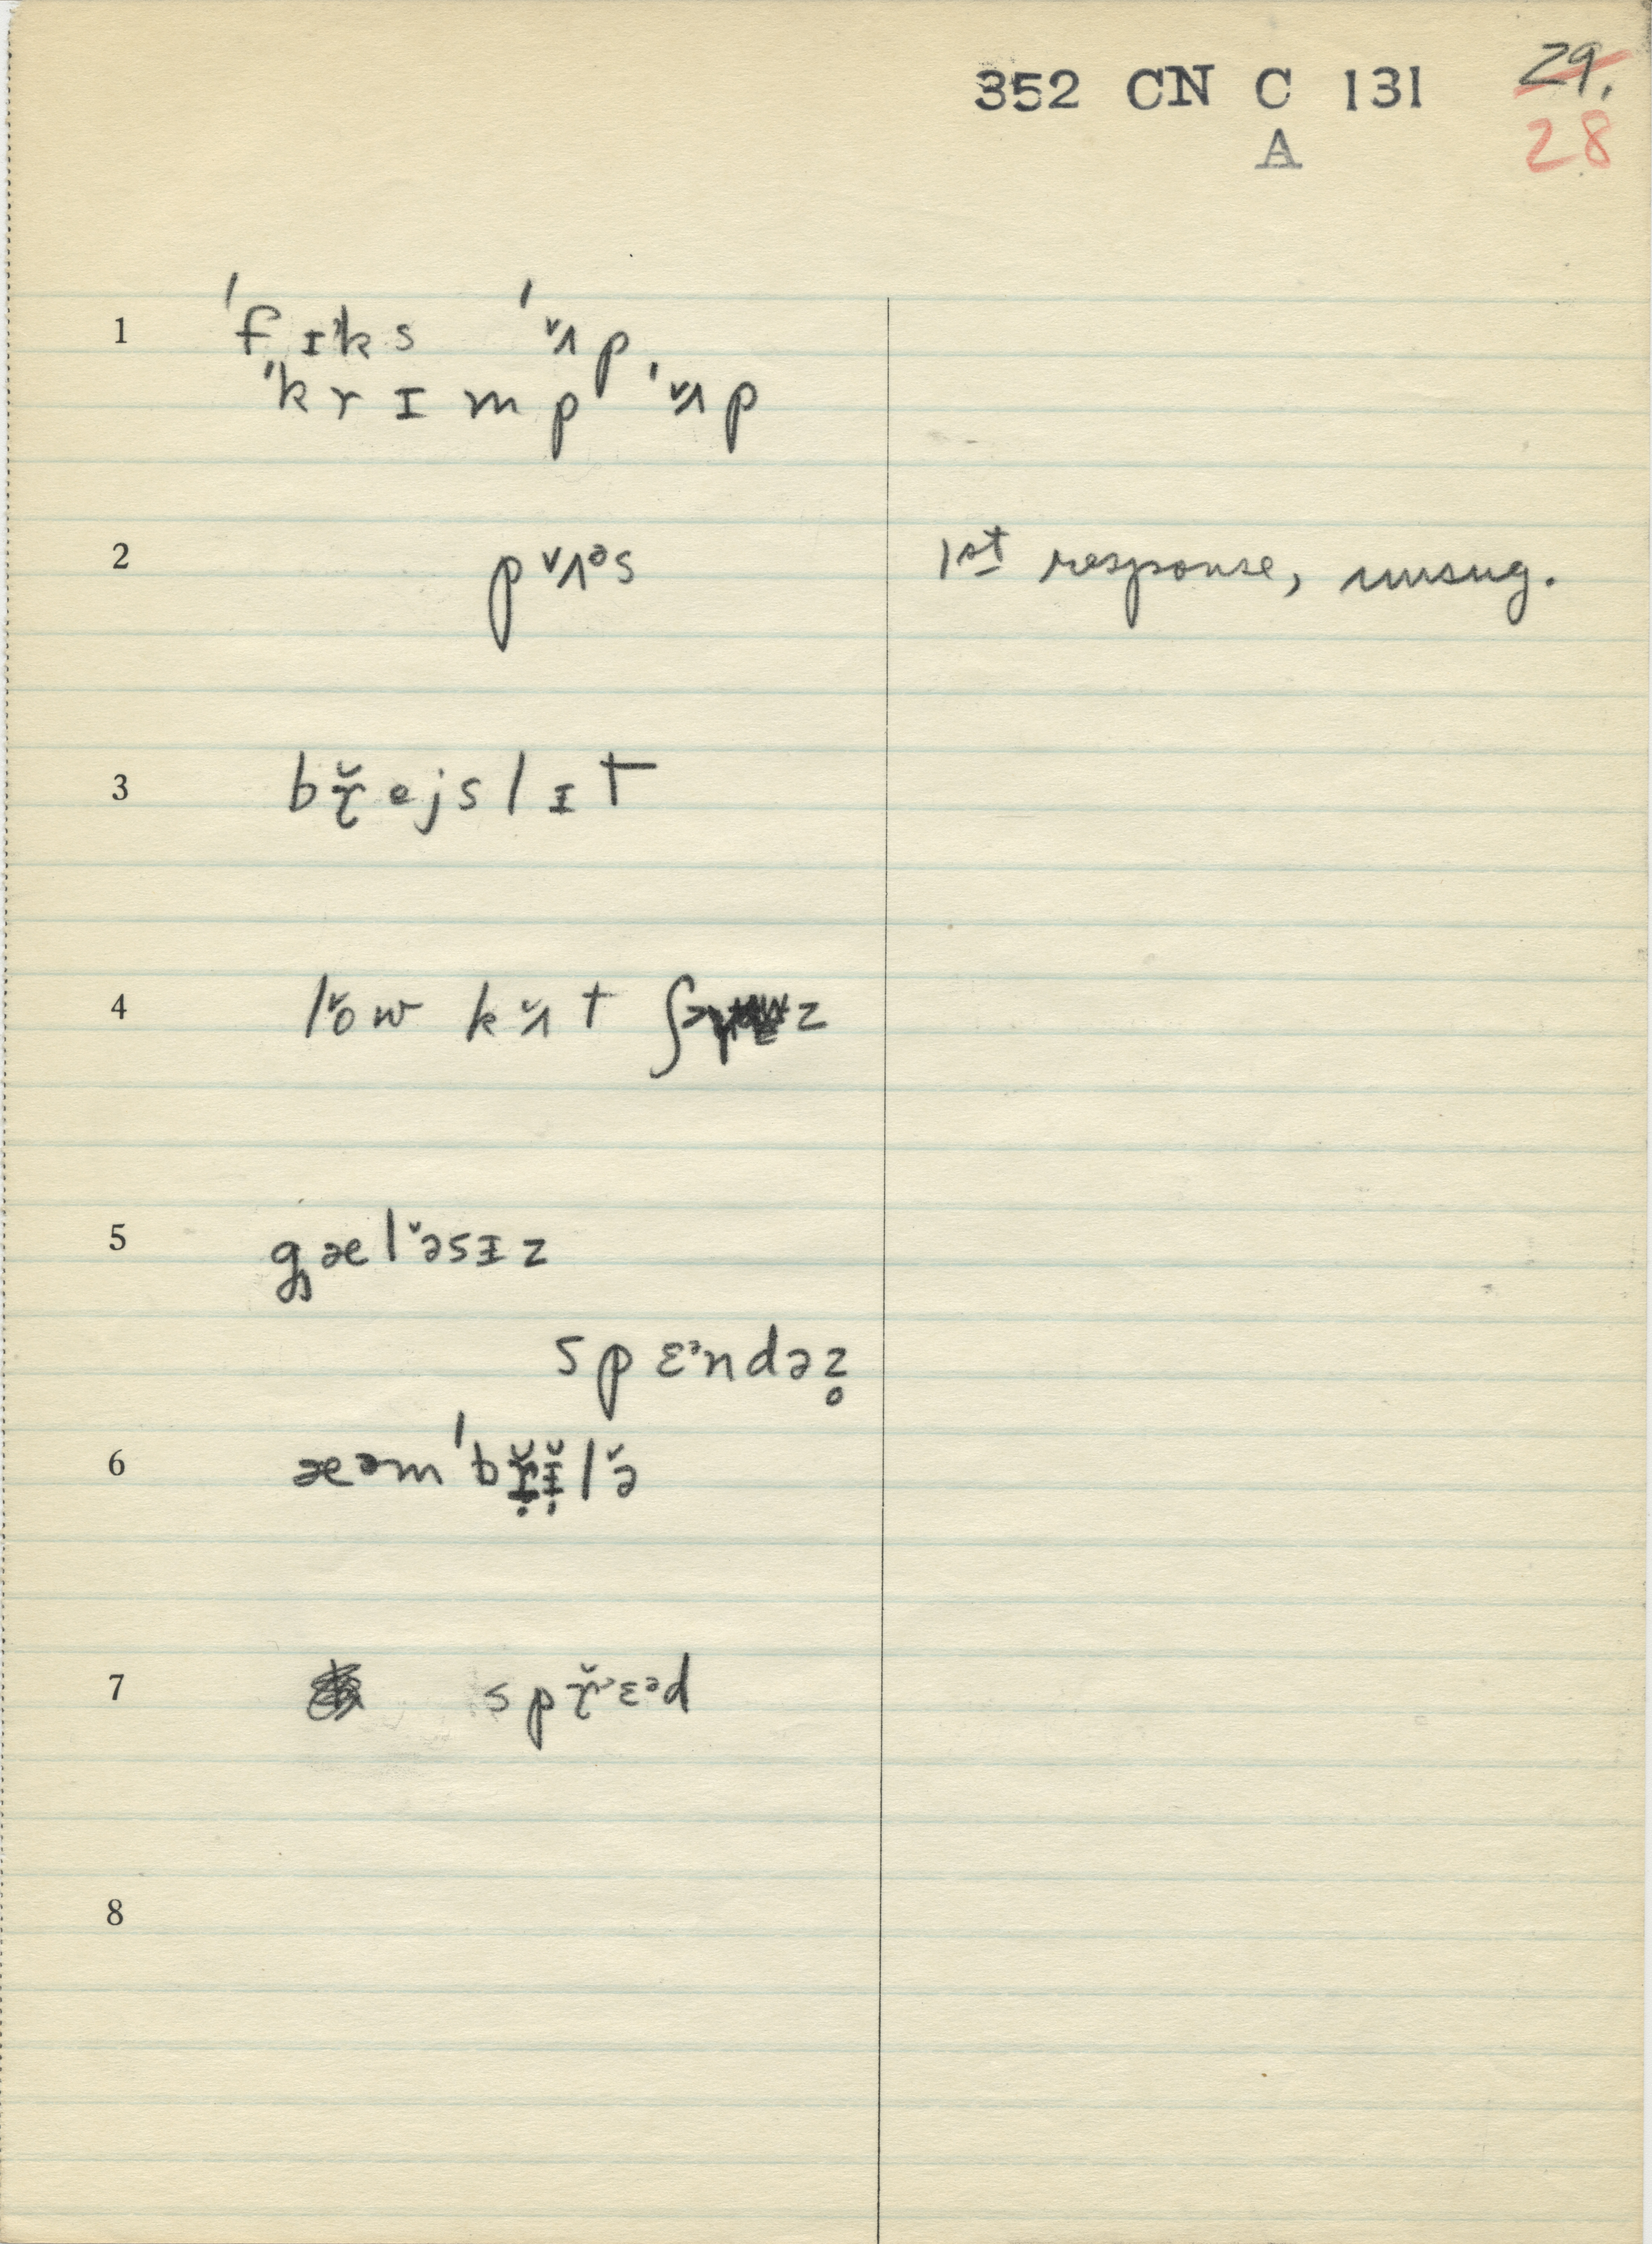 352 CN C 131 29.
A 28
1 ˈfɪks ˈʌ̌p
ˈkrɪmp ˈʌ̌p
2 pʌ̌ᵊs 1st response, unsug.
3 bř̢ejslɪt
4 lǒw kʌ̌t ʃ z
5 gælə̌sɪz
spɛᵊndəz̥
6 æəmˈbř̢ɪ̣̌lə̌
7 spř̢ɛᵊd
8